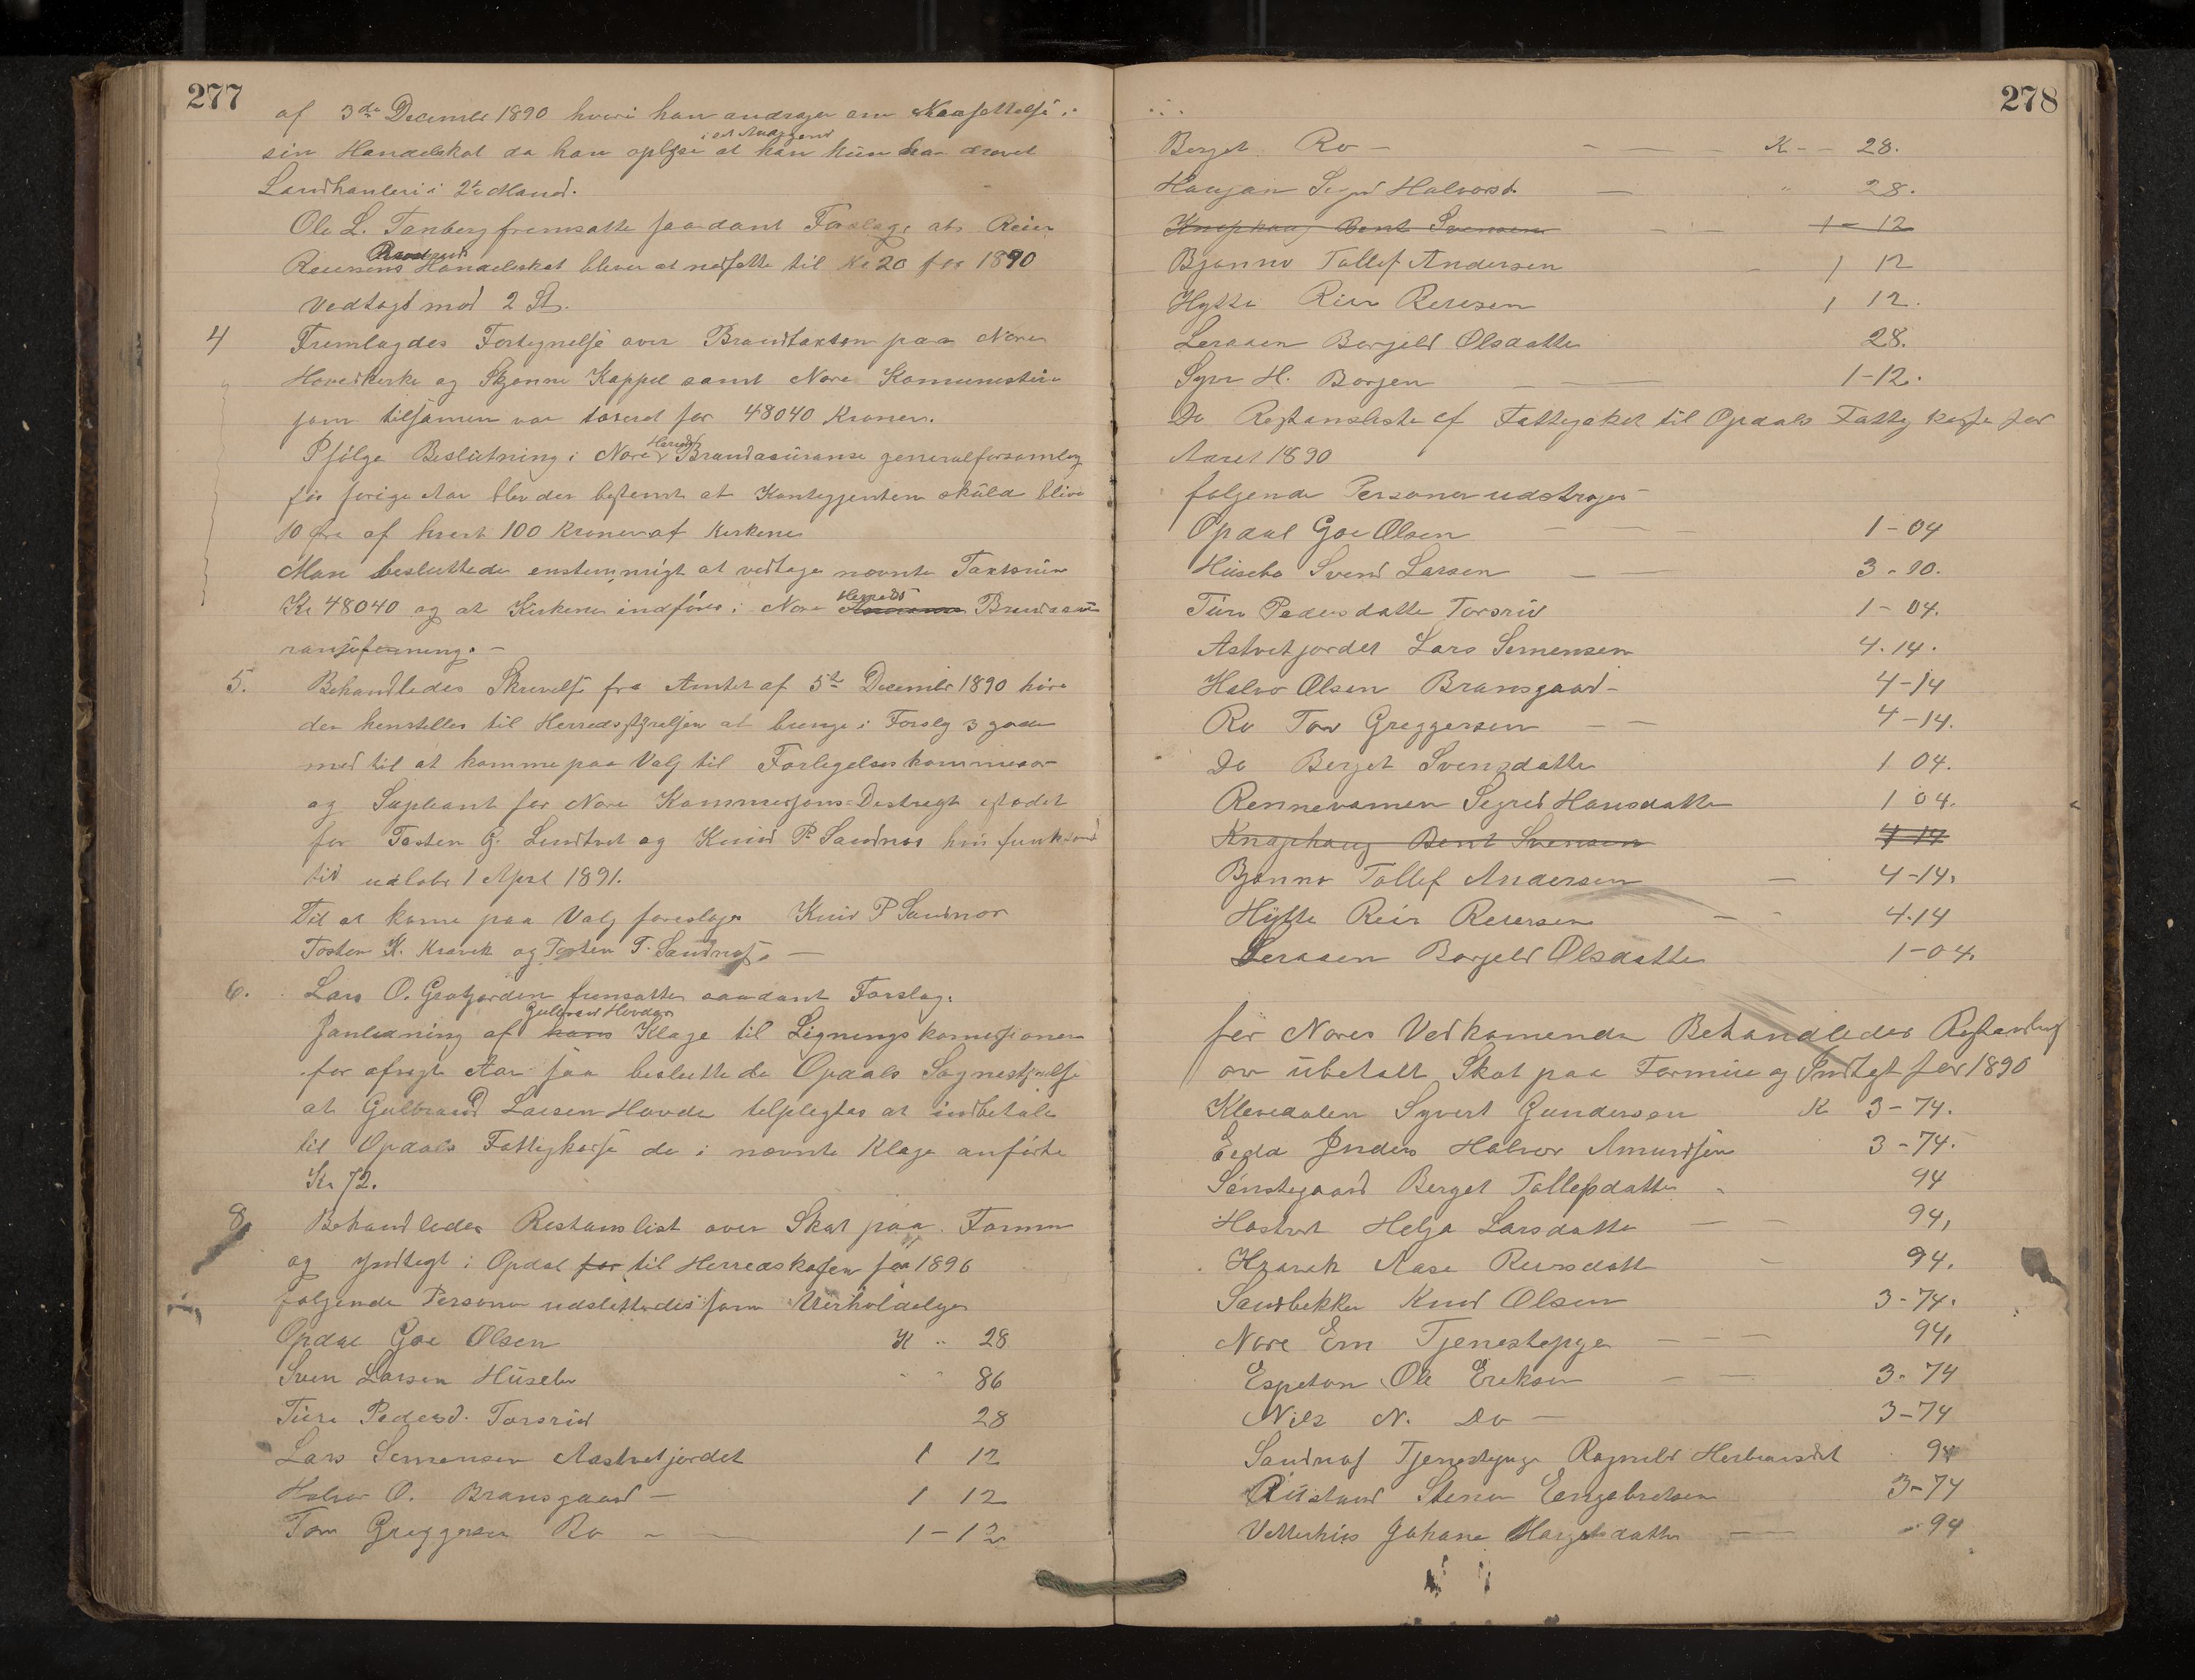 277
af 3de December 1890 hvori han andrager om Nedsettelse i
sin Handelskat da han oplyse i et Andragend at han kun har drevet
Landhanleri i 2de Maned.
Ole L. Tanberg fremsatte saadant Forslag, at Reier
Reiersens Handelskat bliver at nedsette til Kr 20 for 1890
Vedtagt mod 2 St.
4 Fremlagdes Fortegnelse over Brandtaxten paa Nore
Hovedkirke og Skjønne Kappel samt Nore Komunestue
som tilsamen var taxeret for 48040 Kroner.
Ifølge Beslutning i Nore Herreds Brandasuranse generalforsamlig
for forige Aar blev der bestemt at Kontigjenten skulde blive
10 øre af hvert 100 Kroner af Kirkene
Man besluttede enstemmigt at vedtage nævnte Taxtsum
Kr 48040 og at Kirkene indføres i Nore Herreds Brandasu
ransforening. –
5. Behandledes Skrivelse fra Amtet af 5te December 1890 hvor
der henstilles til Herredsstyrelsen at bringe i Forslag 3 gode
med til at komme paa Valg til Forligelseskommisær
og Supleant for Nore Kommisjons-Destrigt istedet
for Tosten G. Lindtvet og Knud P. Sandnes hvis funktions
tid udløber 1 April 1891.
Til at kome paa Valg foreslages Knud P Sandnes
Tosten K. Kravik og Tosten T. Sandnes. –
6. Lars O. Grøtjorden fremsatte saadant Forslag.
I anledning af hans Gulbrand Hovdes Klage til Ligningskomisionen
for afvigte Aar saa besluttede Opdals Sognestyrelse
at Gulbrand Larsen Hovde tilpligtes at indbetale
til Opdals Fattigkasse de i nævnte Klage anførte
Kr 72.
8. Behandledes Restanslist over Skat paa Formue
og Indtægt i Opdal for til Herredskassen for 1890
følgende Persone udslettedes som Uerholdelige
Opdal Goe Olsen K " 28
Sven Larsen Húsebø " " 86
Túri Pedersd. Torsrúd 28
Lars Semensen Aastvetjordet 1 12
Halvor O. Bransgaard – 1 12
Tov Greggersen Ro – 1 – 12
278
Berget Ro – K – 28.
Haugan Sigrid Halvorsd. " 28.
Knaphaug Bent Svensen 1 – 12
Bjønno Tollef Andersen 1 12
Hytte Reier Reiersen 1 12.
Leraaen Borgild Olsdatter 28.
Syver H. Borgen 1 – 12.
Do Restansliste af Fattigskat til Opdals Fattigkasse for
Aaret 1890
følgende Personer udstryges
Opdal Goe Olsen 1 – 04
Húsebø Svend Larsen 3 – 10.
Túri Pedersdatter Torsrúd 1 – 04.
Astvetjordet Lars Semensen 4.14.
Halvo Olsen Bransgaard – 4 – 14
Ro Tov Greggersen 4 – 14.
Do Berget Svensdatter 1 04.
Rennevamen Segrid Hansdatter 1 04.
Knaphaug Bent Svensen 4 14
Bjønno Tollef Andersen 4 – 14.
Hÿtte Reier Reiersen 4.14
Leraaen Borgild Olsdatter 1 – 04.
for Nores Vedkomende Behandledes Restanslist
over ubetalt Skat paa Formue og Indtegt for 1890
Klevedalen Syvert Gundersen K 3 – 74.
Anders Halvor Amundsen 3 – 74.
Sønstegaard Berget Tollefsdatter 94
Helga Larsdatter 94,
Kravik Aase Reiersdatt 94.
Sandbekke Knud Olsen 3 – 74.
Nore Em Tjenestepge 94,
Espeton Ole Eriksen 3 – 74
Nils N. Do – 3 – 74
Sandnes Tjenestepige Ragnild Herbrandsdt 94
Rústand Stener Engebretsen 3 – 74
Vetterhús Johane datter 94